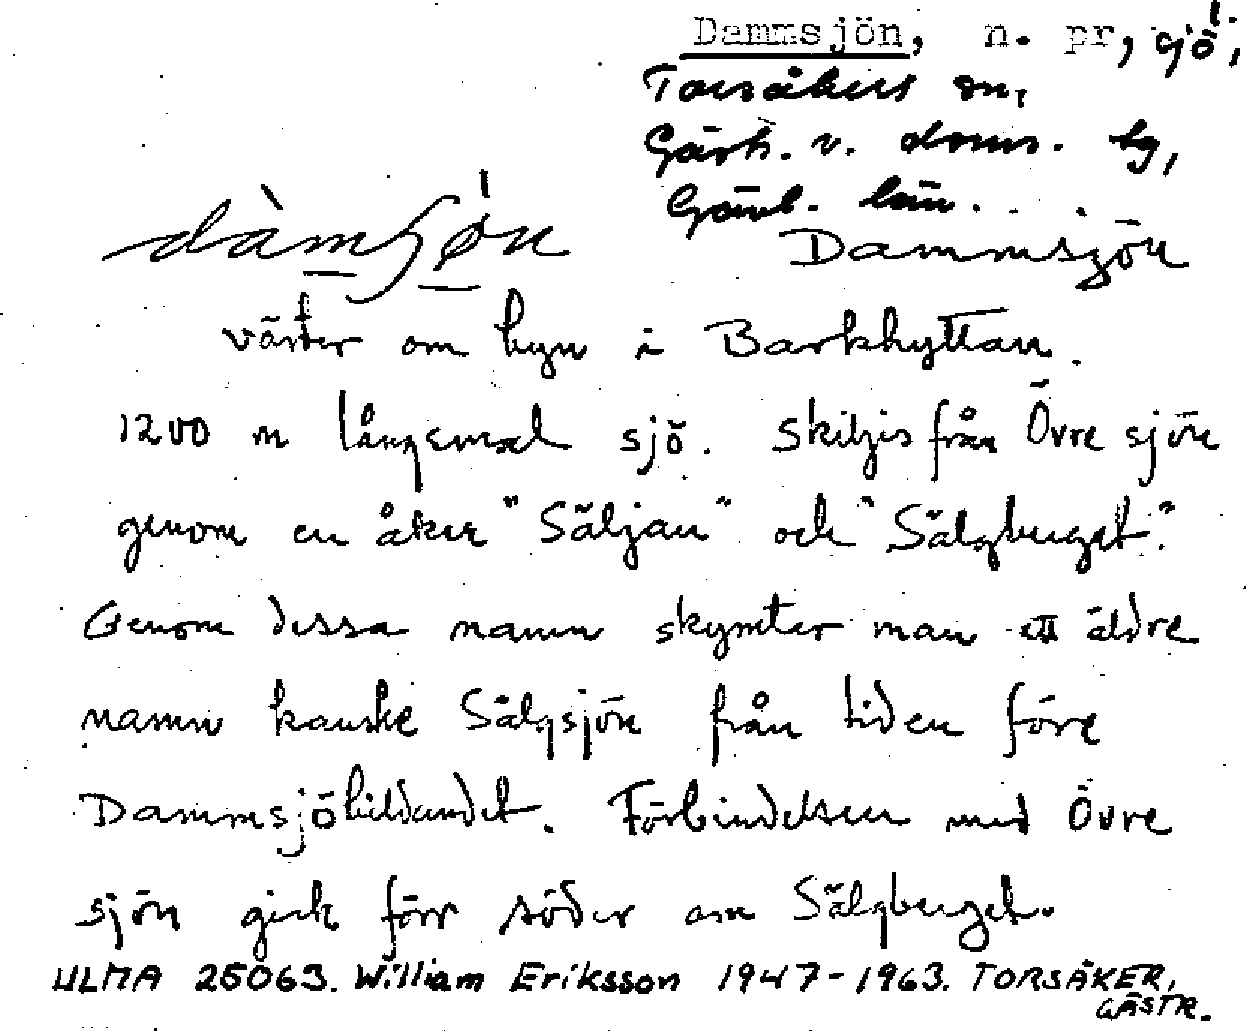 Dammsjön, n. pr, sjö,
Torsåkers sn,
Gästr. v. doms. tg,
Gävl. län.
dàmʃø̀n Dammsjön
väster om byn i Barkhyttan.
1200 m lång sjö. Skiljis från Övre sjön
genom en åker "Säljan" och "Sälgberget".
Genom dessa namn skymtar man ett äldre
namn kanske Sälgsjön från tiden före
Dammsjöbildandet. Förbindelsen med Övre
sjön gick förr söder om Sälgberget.
ULMA 25063. William Eriksson 1947-1963. TORSÅKER,
GÄSTR.